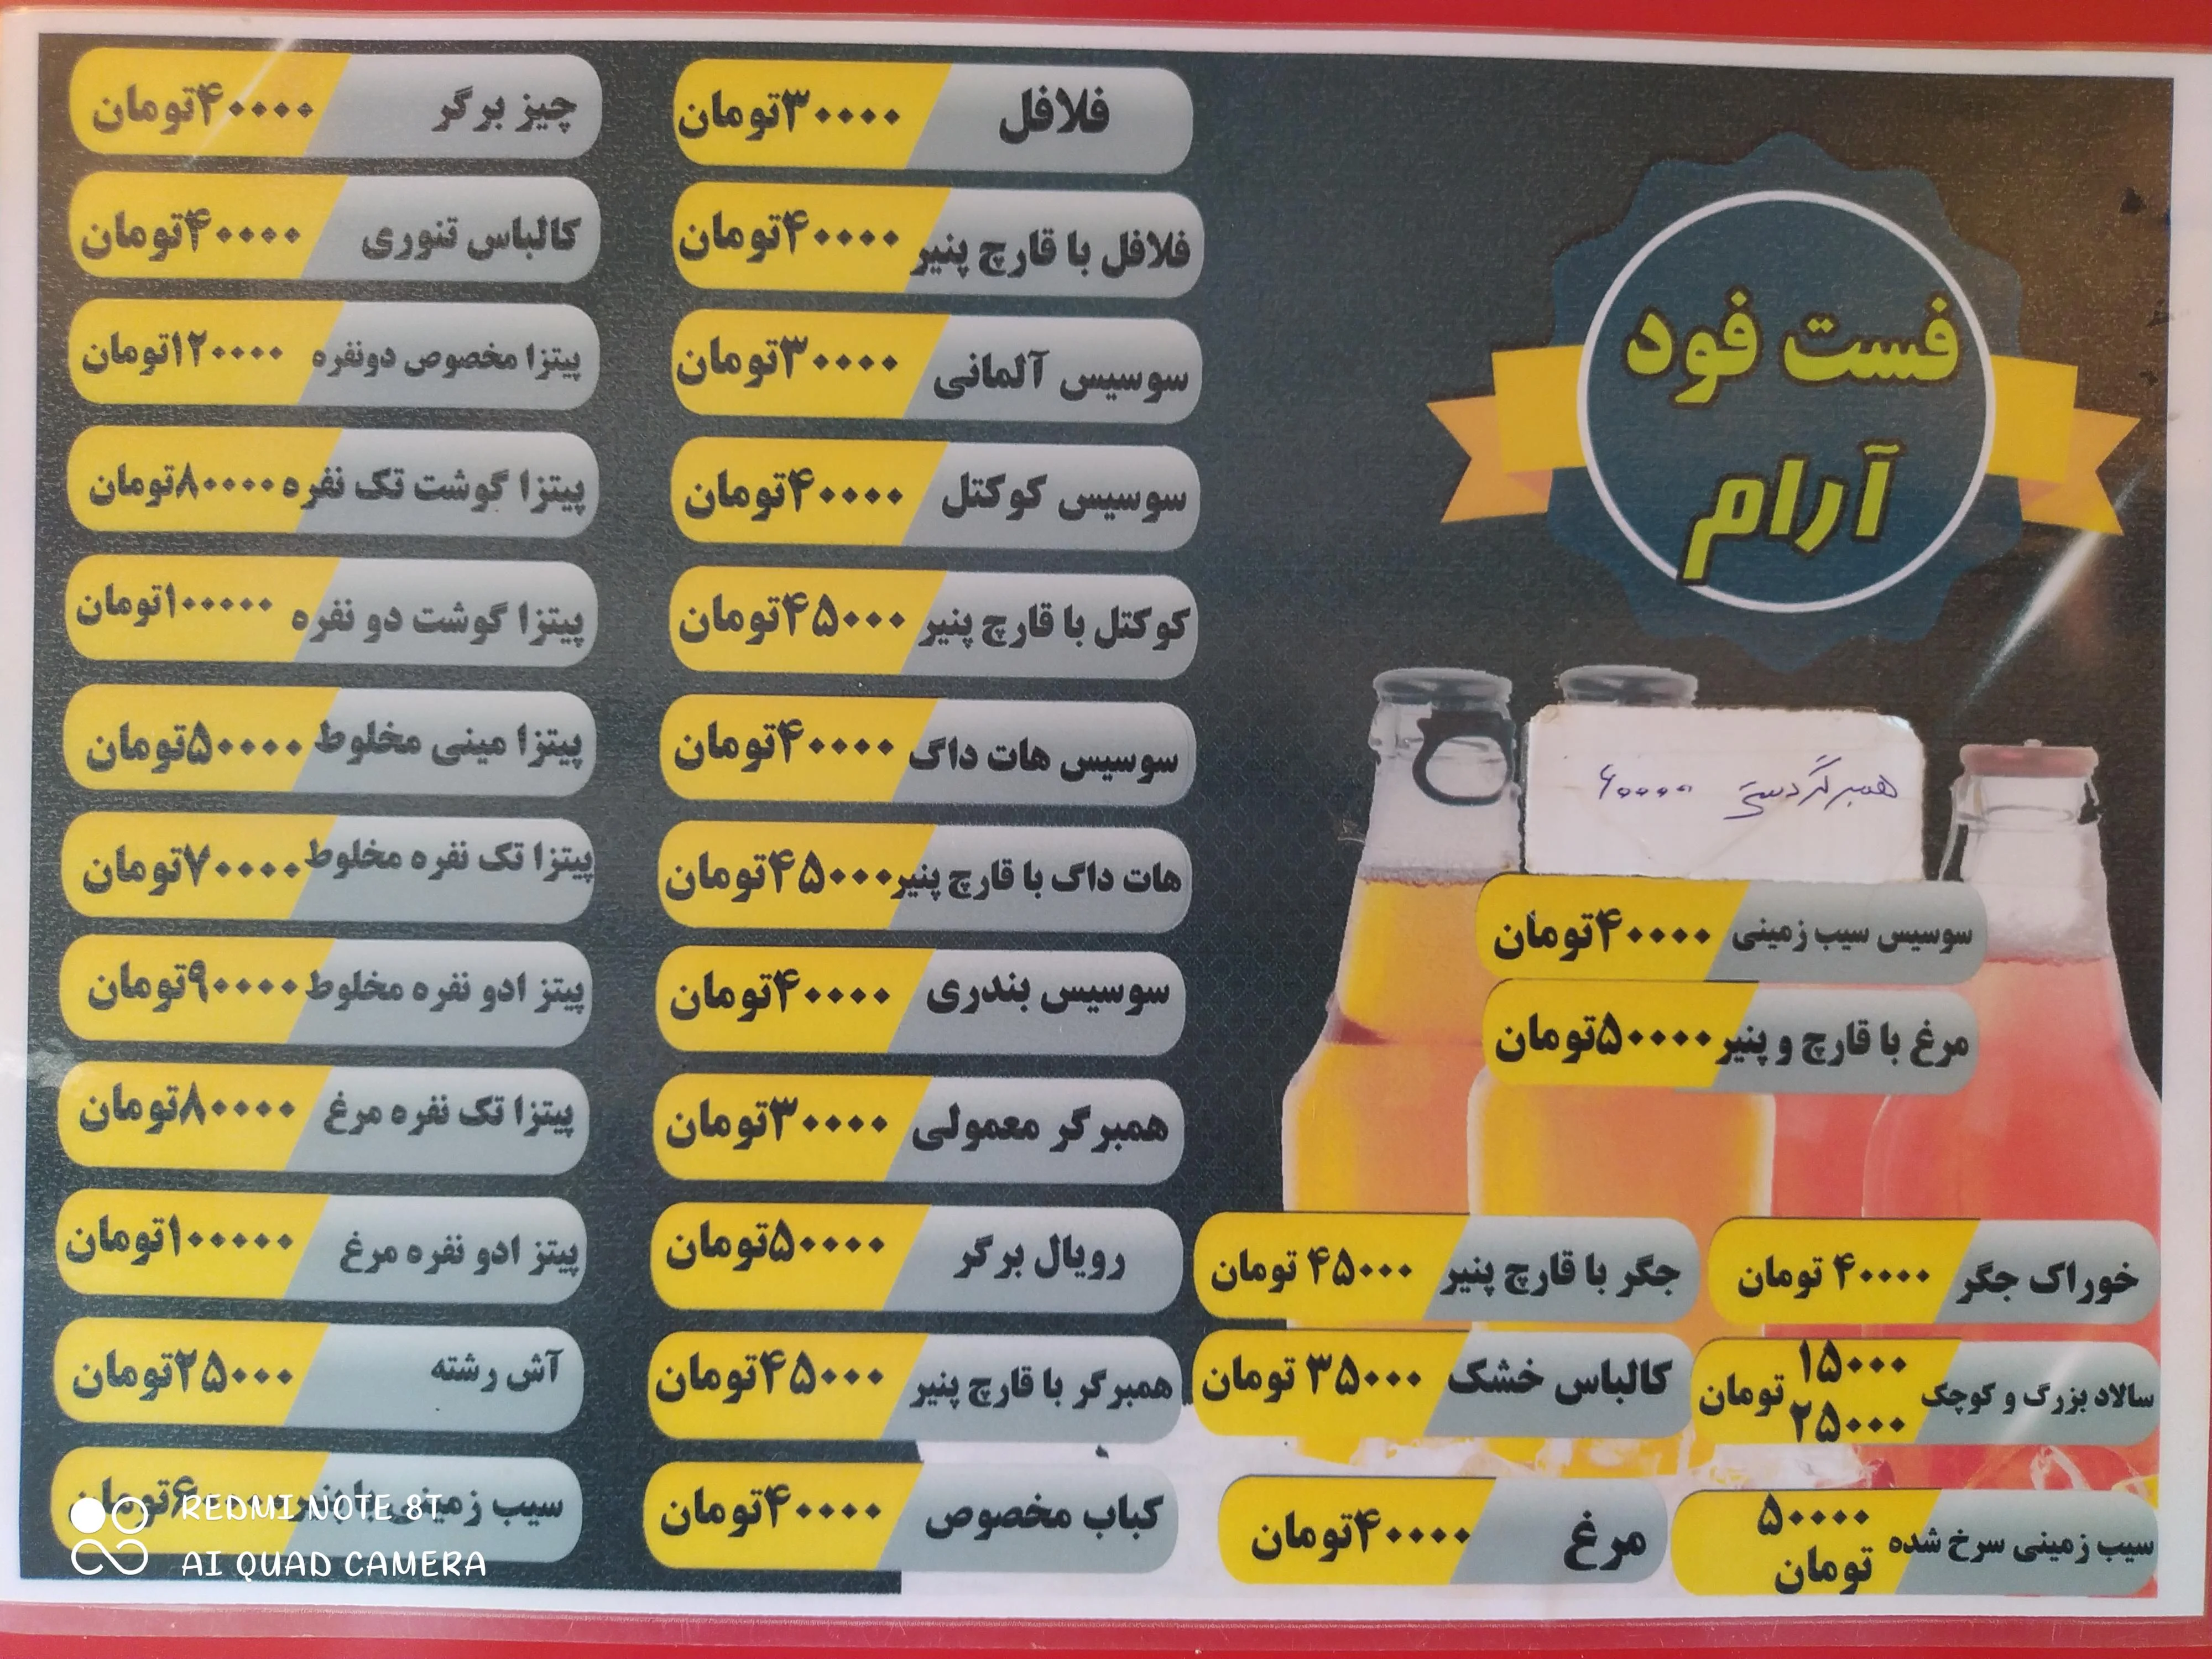 فست فود
آرام
همبرگر دستی ۶۰۰۰۰
سوسیس سیب زمینی ۴۰۰۰۰تومان
مرغ با قارچ و پنیر ۵۰۰۰۰تومان
خوراک جگر ۴۰۰۰۰ تومان
سالاد بزرگ و کوچک ۱۵۰۰۰ ۲۵۰۰۰ تومان
سیب زمینی سرخ شده ۵۰۰۰۰ تومان
جگر با قارچ پنیر ۴۵۰۰۰ تومان
کالباس خشک ۳۵۰۰۰ تومان
مرغ ۴۰۰۰۰تومان
فلافل ۳۰۰۰۰تومان
فلافل با قارچ پنیر ۴۰۰۰۰تومان
سوسیس آلمانی ۳۰۰۰۰تومان
سوسیس کوکتل ۴۰۰۰۰تومان
کوکتل با قارچ پنیر ۴۵۰۰۰تومان
سوسیس هات داگ ۴۰۰۰۰تومان
هات داگ با قارچ پنیر ۴۵۰۰۰تومان
سوسیس بندری ۴۰۰۰۰تومان
همبرگر معمولی ۳۰۰۰۰تومان
رویال برگر ۵۰۰۰۰تومان
همبرگر با قارچ پنیر ۴۵۰۰۰تومان
کباب مخصوص ۴۰۰۰۰تومان
چیز برگر ۴۰۰۰۰تومان
کالباس تنوری ۴۰۰۰۰تومان
پیتزا مخصوص دونفره ۱۲۰۰۰۰تومان
پیتزا گوشت تک نفره ۸۰۰۰۰تومان
پیتزا گوشت دو نفره ۱۰۰۰۰۰تومان
پیتزا مینی مخلوط ۵۰۰۰۰تومان
پیتزا تک نفره مخلوط ۷۰۰۰۰تومان
پیتز ادو نفره مخلوط ۹۰۰۰۰تومان
پیتزا تک نفره مرغ ۸۰۰۰۰تومان
پیتز ادو نفره مرغ ۱۰۰۰۰۰تومان
آش رشته ۲۵۰۰۰تومان
سیب زمینی با پنیر ۶۰۰۰۰تومان
REDMI NOTE 8T
AI QUAD CAMERA